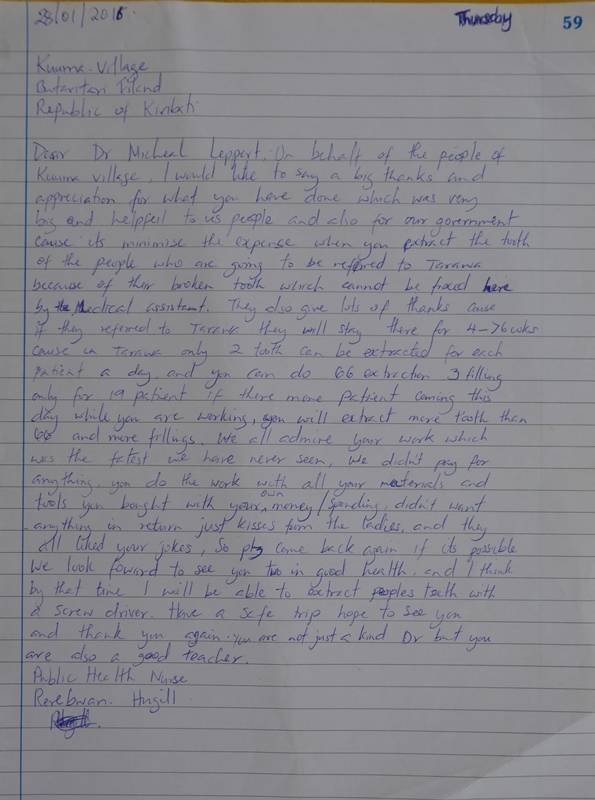 28/01/2016 Thursday 59
Kuuma-Village
Butaritari Island
Republic of Kiribati
Dear Dr Micheal Leppert, On behalf of the people of
Kuuma village, I would like to say a big thanks and
appreciation for what you have done which was very
big and helpfell to us people and also for our government
cause its minimise the expense when you extract the tooth
of the people who are going to be referred to Tarawa
because of their broken tooth which cannot be fixed here
by the Medical assistant. They also give lots of thanks cause
if they referred to Tarawa they will stay there for 4-76wks
cause in Tarawa only 2 tooth can be extracted for each
patient a day, and you can do 66 extraction 3 filling
only for 19 patient if there more patient coming this
day while you are working, you will extract more tooth than
66 and more fillings. We all admire your work which
was the fatest we have never seen, we didn't pay for
anything, you do the work with all your materials and
tools you bought with your own money/spending, didn't want
anything in return just kisses from the ladies, and they
all liked your jokes, So plz come back again if its possible
We look foward to see you two in good health, and I think
by that time I will be able to extract peoples teeth with
a screw driver. Have a safe trip hope to see you
and thank you again. You are not just a kind Dr but you
are also a good teacher.
Public Health Nurse
Rerebwan. Hugill